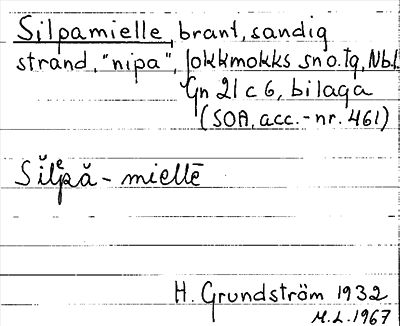 Silpamielle, brant, sandig
strand, "nipa", Jokkmokks sn o. tg, Nbl.
Gn 21 c 6, bilaga
(SOA, acc.-nr. 461)
Sĭlᵉpă - miellē
H. Grundström 1932
M.L. 1967